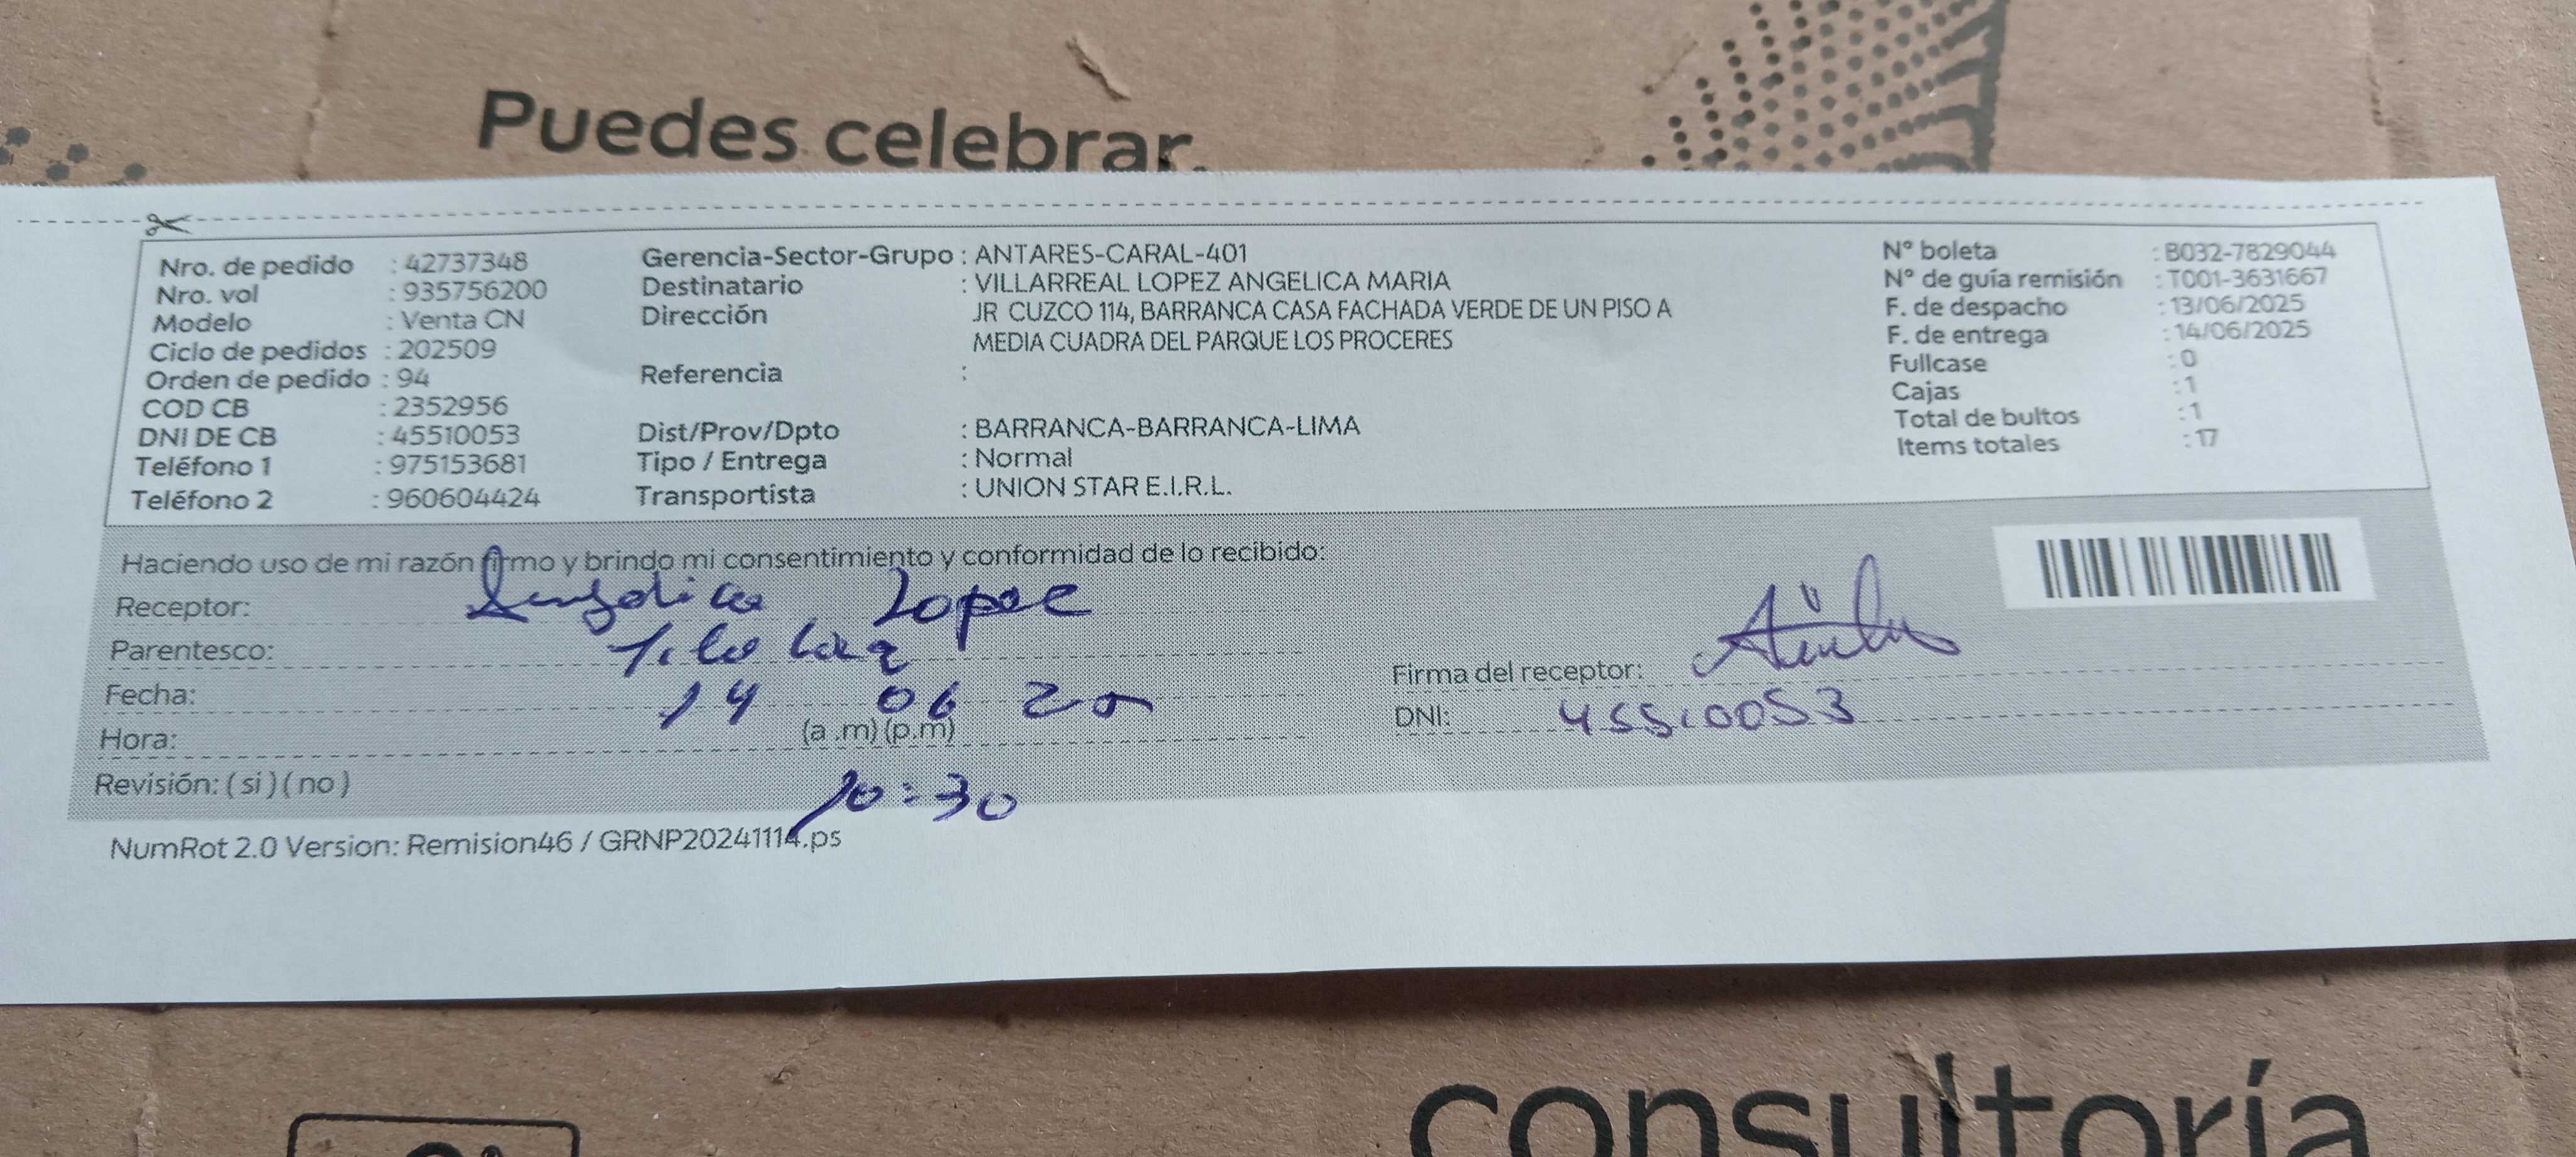 Puedes celebrar.
Nro. de pedido : 42737348
Nro. vol : 935756200
Modelo : Venta CN
Ciclo de pedidos : 202509
Orden de pedido : 94
COD CB : 2352956
DNI DE CB : 45510053
Teléfono 1 : 975153681
Teléfono 2 : 960604424
Gerencia-Sector-Grupo : ANTARES-CARAL-401
Destinatario : VILLARREAL LOPEZ ANGELICA MARIA
Dirección JR CUZCO 114, BARRANCA CASA FACHADA VERDE DE UN PISO A
MEDIA CUADRA DEL PARQUE LOS PROCERES
Referencia :
Dist/Prov/Dpto : BARRANCA-BARRANCA-LIMA
Tipo / Entrega : Normal
Transportista : UNION STAR E.I.R.L.
N° boleta : B032-7829044
N° de guía remisión : T001-3631667
F. de despacho : 13/06/2025
F. de entrega : 14/06/2025
Fullcase : 0
Cajas : 1
Total de bultos : 1
Items totales : 17
Haciendo uso de mi razón firmo y brindo mi consentimiento y conformidad de lo recibido:
Receptor: Angelica Lopez
Parentesco: Titular
Fecha: 14 06 25
Hora: (a .m) (p.m)
Revisión: ( si ) ( no ) 10:30
Firma del receptor:
DNI: 45510053
NumRot 2.0 Version: Remision46 / GRNP20241114.ps
consultoría